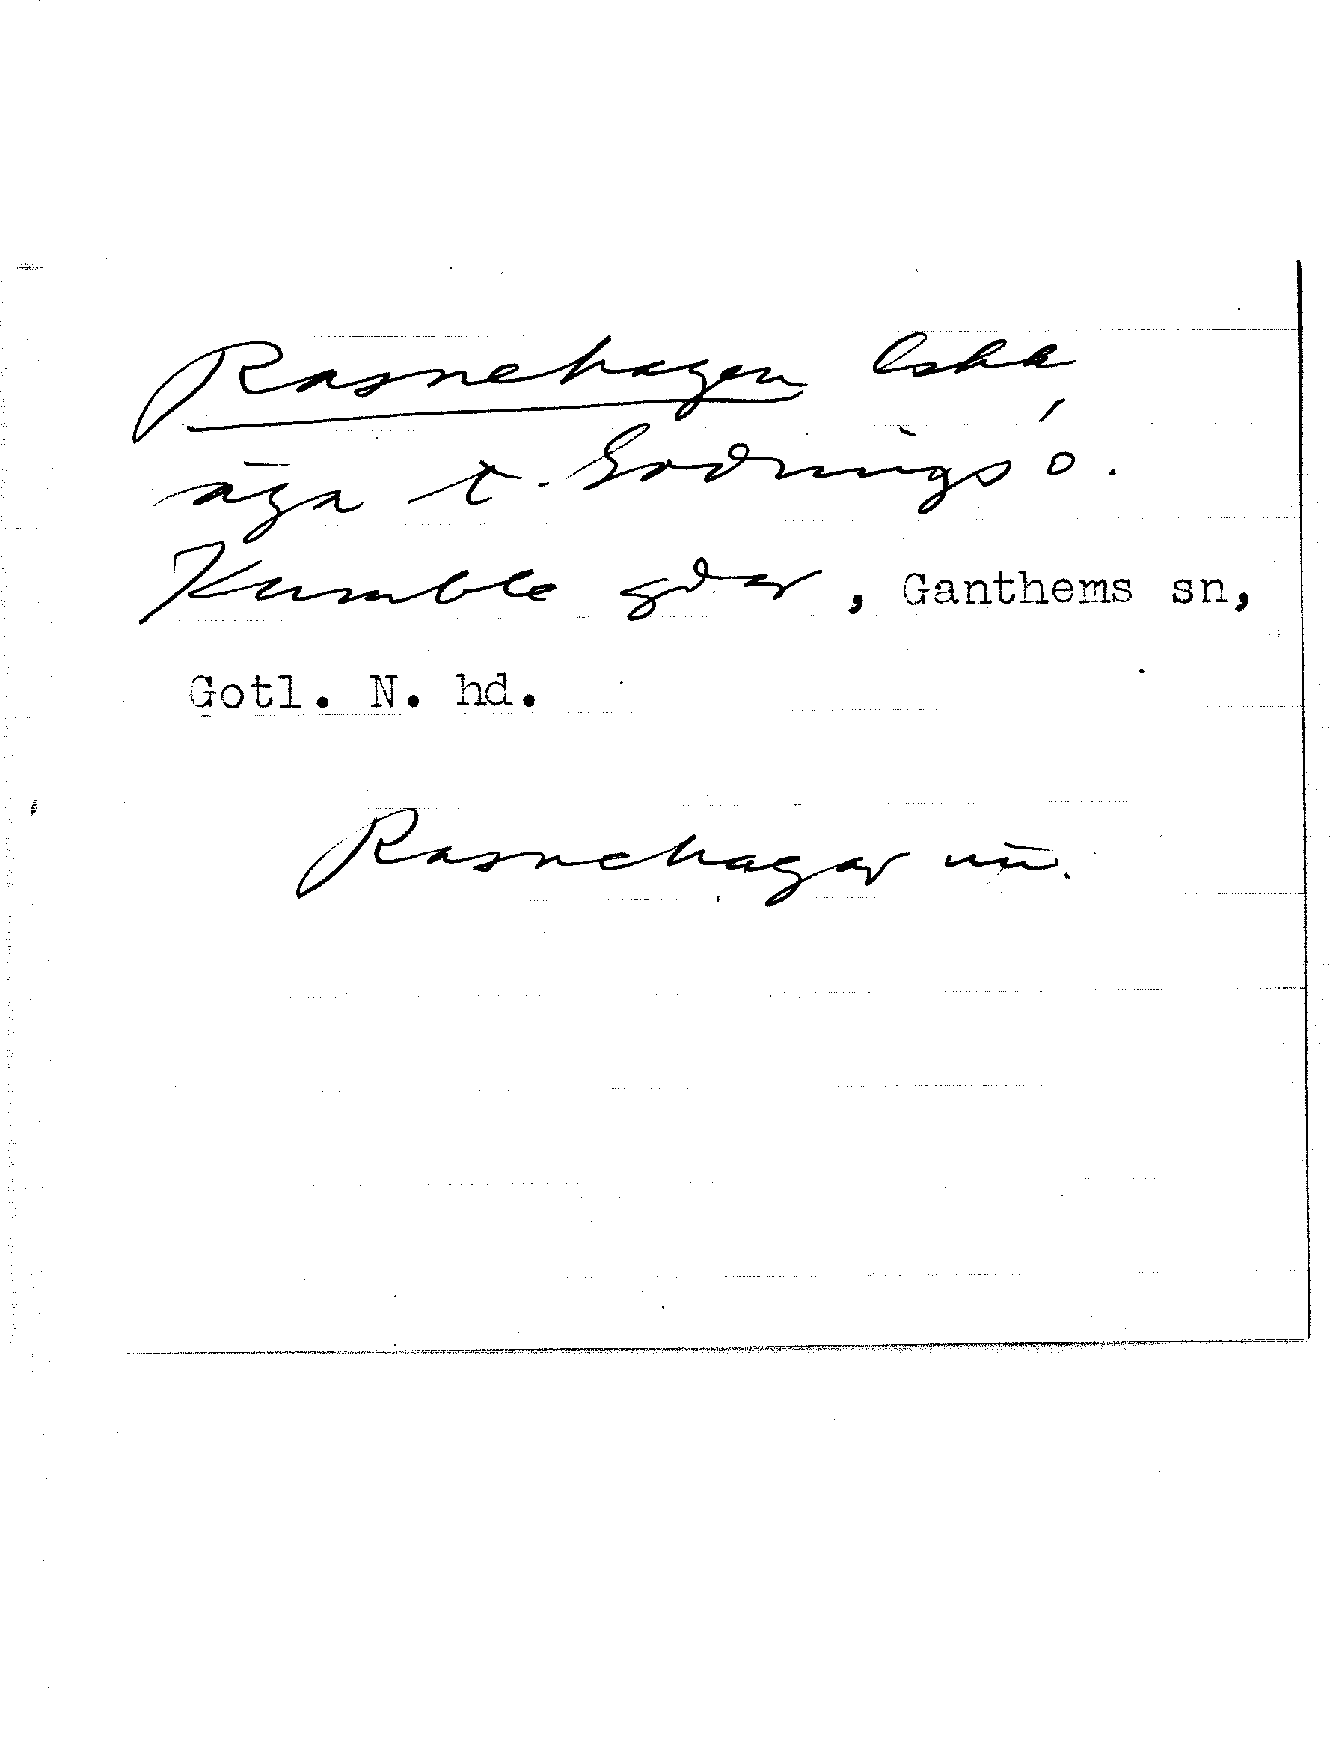 Rasnehagen
äga t. Godrings o.
Kumble gdar, Ganthems sn,
Gotl. N. hd.
Rasnehagar